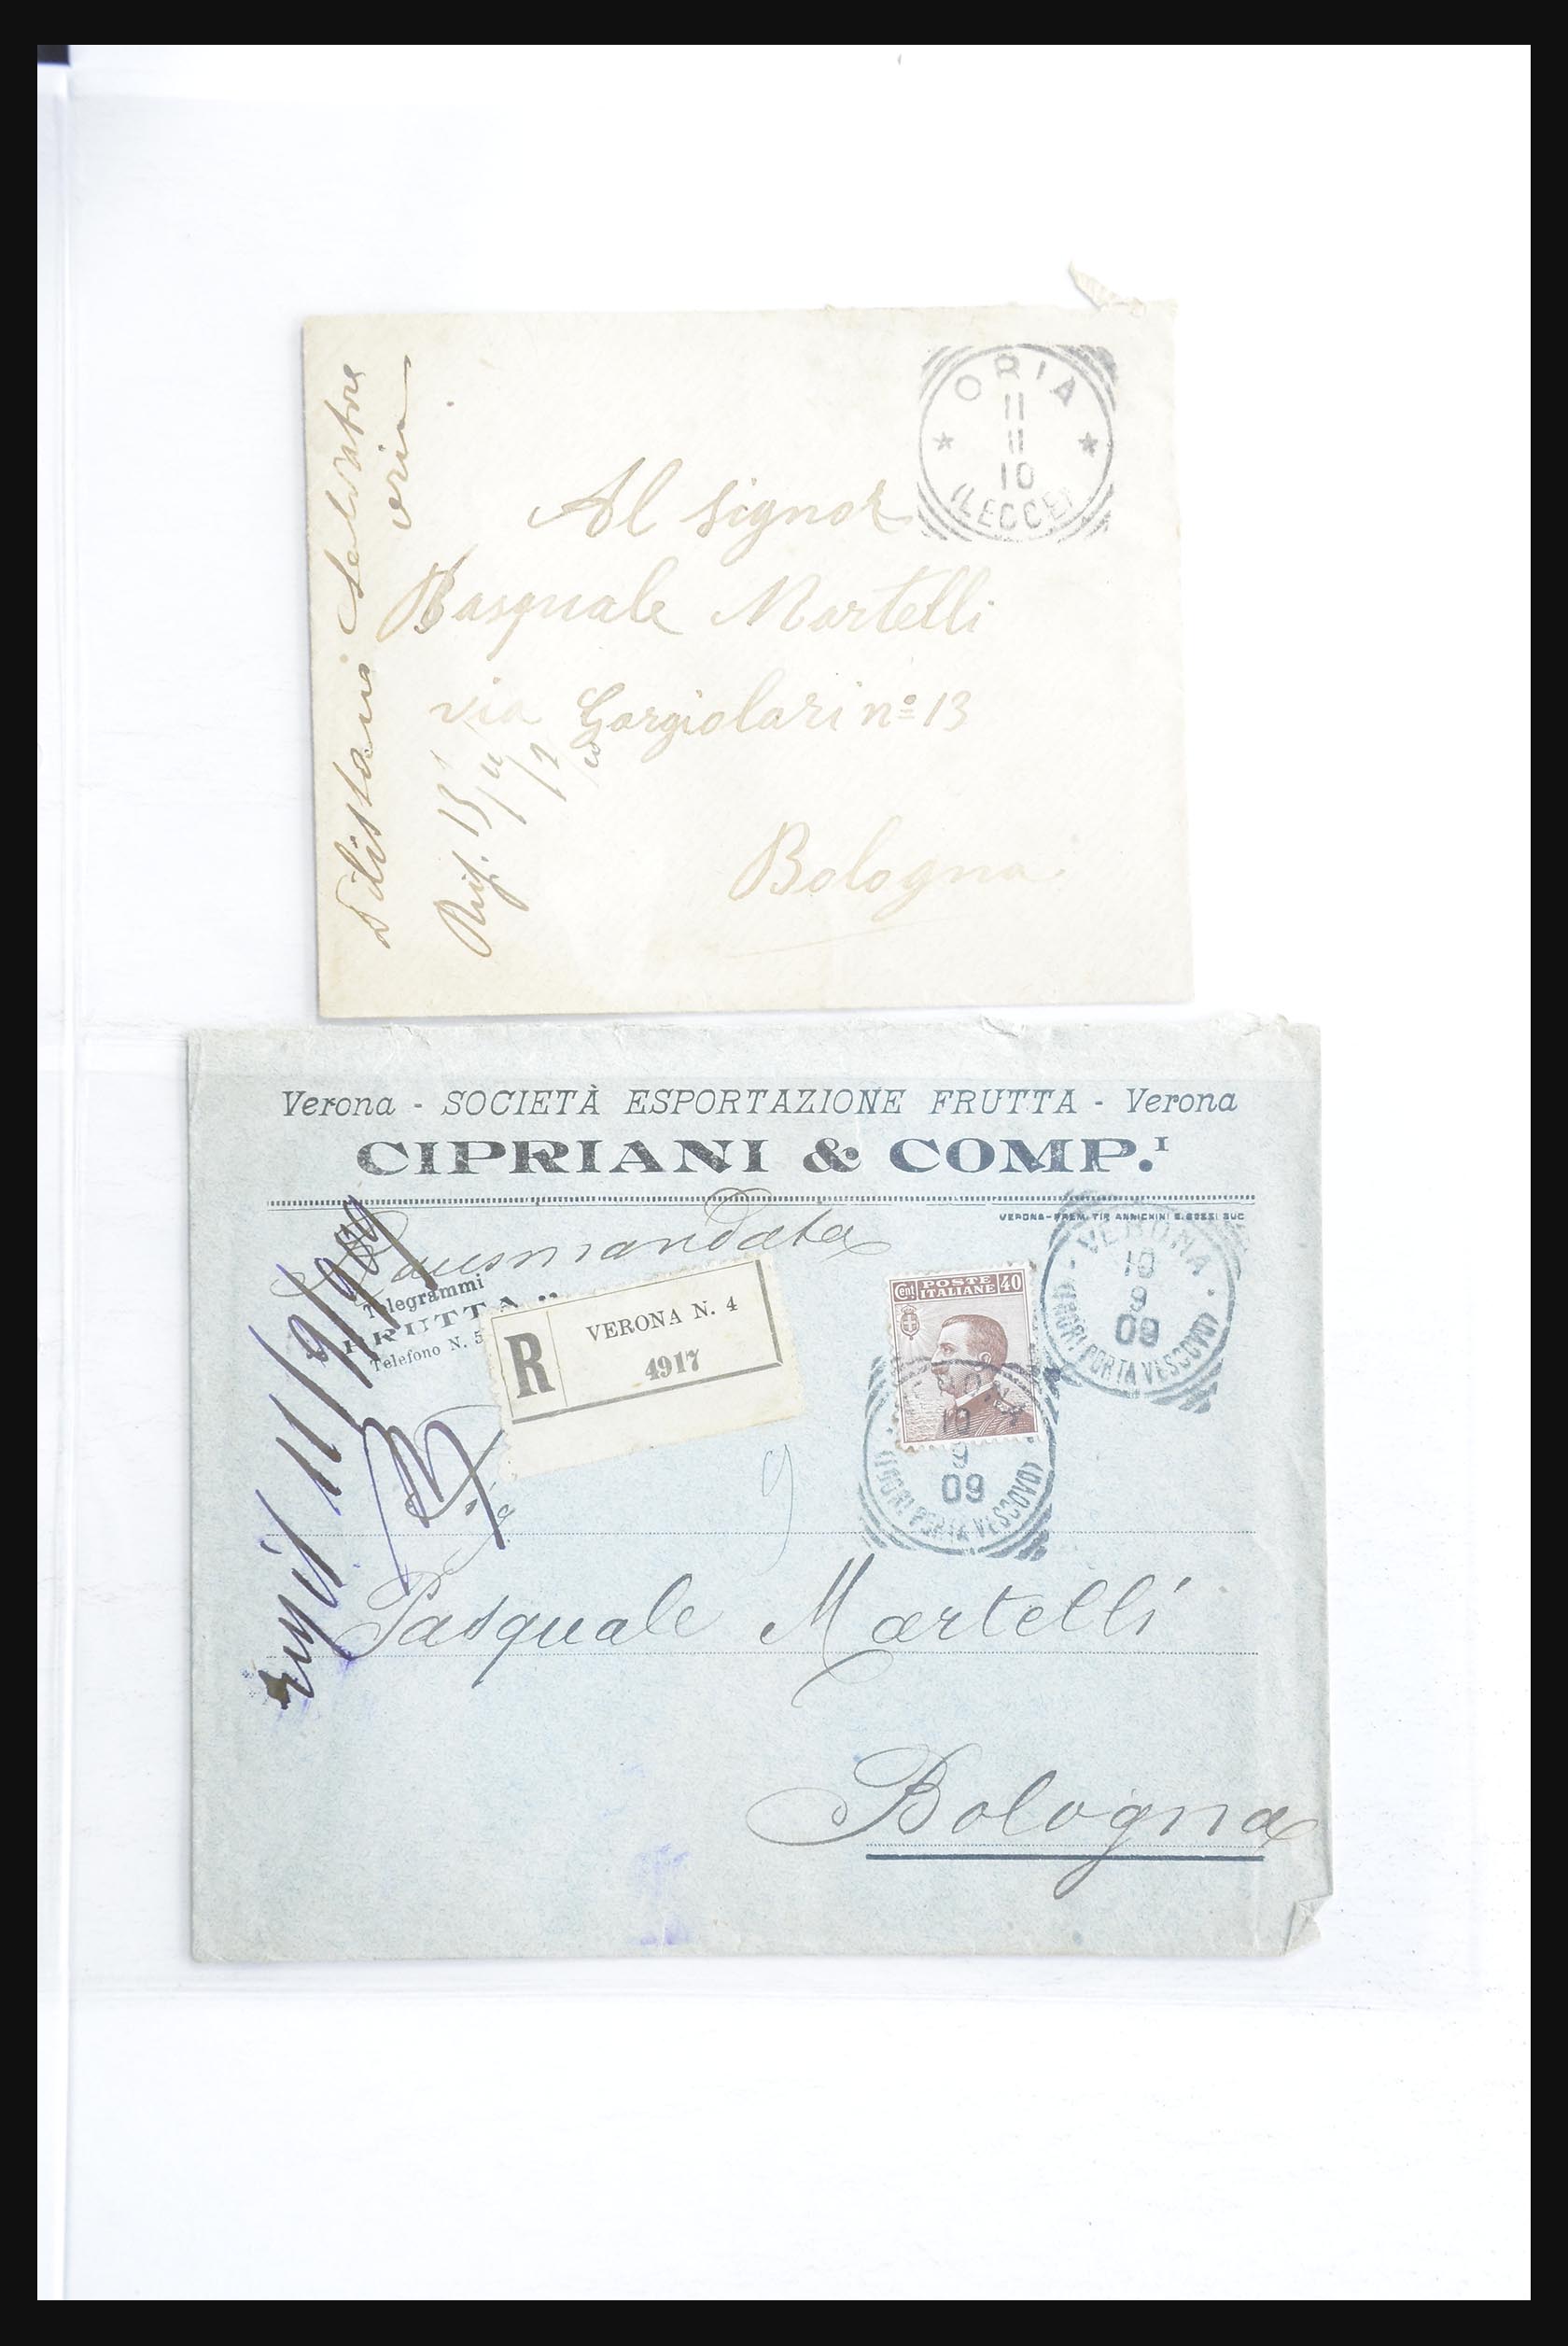 ORIA
11
11
10
(LECCE)
Salvatore
Oria
Al Signor
Pasquale Martelli
via Gargiolari nº 13
Bologna
Verona - SOCIETÀ ESPORTAZIONE FRUTTA - Verona
CIPRIANI & COMP.I
VERONA-PREM. TIP. ANNICHINI
Raccomandata
Telegrammi
FRUTTA "
Telefono N. 5
R
VERONA N. 4
4917
Cent. POSTE ITALIANE 40
VERONA
10
9
09
(FUORI PORTA VESCOVO)
VERONA
10
9
09
(FUORI PORTA VESCOVO)
11/9/909
9
Pasquale Martelli
Bologna